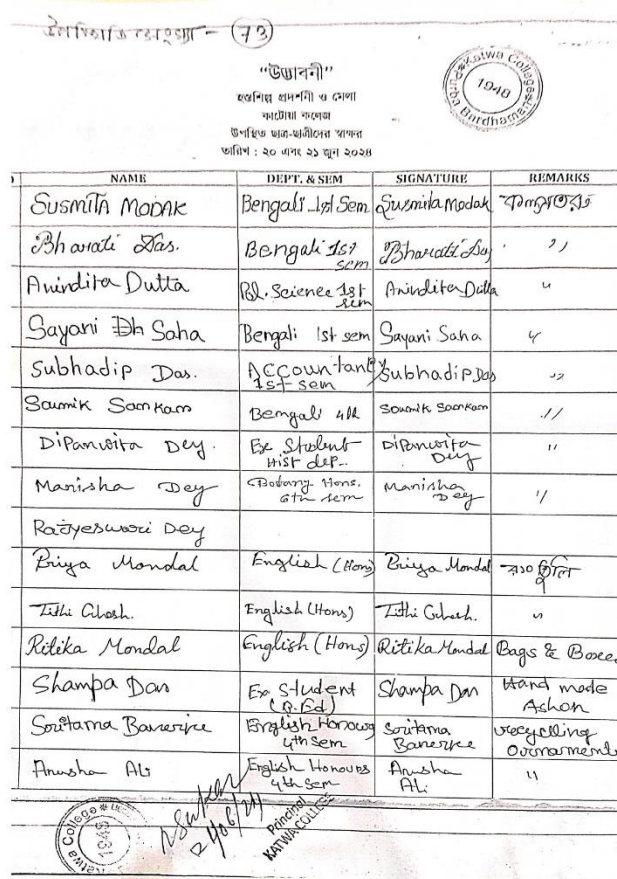 উপস্থিতি সংখ্যা - (73)
“উদ্ভাবনী”
হস্তশিল্প প্রদর্শনী ও মেলা
কাটোয়া কলেজ
উপস্থিত ছাত্র-ছাত্রীদের স্বাক্ষর
তারিখ : ২০ এবং ২১ জুন ২০২৪
Katwa College
1948
Purba Bardhaman
NAME DEPT. & SEM SIGNATURE REMARKS
SUSMITA MODAK Bengali 1st Sem Susmita Modak
Bharati Das. Bengali 1st sem Bharati Das ,,
Anindita Dutta Pol. Science 1st sem Anindita Dutta "
Sayani Saha Bengali 1st sem Sayani Saha "
Subhadip Das. Accountancy 1st sem Subhadip Das ,,
Soumik Sarkar Bengali 4th Soumik Sarkar "
Dipanwita Dey. Ex Student Hist dep.. Dipanwita Dey "
Manisha Dey Botany Hons. 6th sem Manisha Dey "
Rajyeswari Dey
Priya Mondal English (Hons) Priya Mondal রং তুলি
Tithi Ghosh. English (Hons) Tithi Ghosh. "
Ritika Mondal English (Hons) Ritika Mondal Bags & Boxes
Shampa Das Ex Student (B.Ed) Shampa Das Hand made Ashon
Soritama Banerjee English Honours 4th Sem Soritama Banerjee recycling Ournaments
Anusha Ali English Honours 4th Sem Anusha Ali "
Katwa College
1948
21/06/24
Principal
KATWA COLLEGE